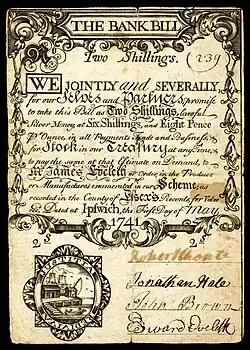 THE BANK BILL
Two Shillings. (239
WE JOINTLY and SEVERALLY,
for our Selves and Partners, promise
to take this Bill as Two Shillings, lawful
Silver Money, at Six Shillings and Eight Pence
P Ounce, in all Payments, Trade and Business,
for Stock in our Treasury at any Time;
to pay the same at that Estimate on Demand, to
Mr James Eveleth or Order, in the Produce
or Manufactures enumerated in our Scheme; as
recorded in the County of Essex's Records, for Value
Dated at Ipswich, the First Day of May,
1741
2s 2s
Robert Choate
Jonathan Hale
John Brown
Edward Eveleth